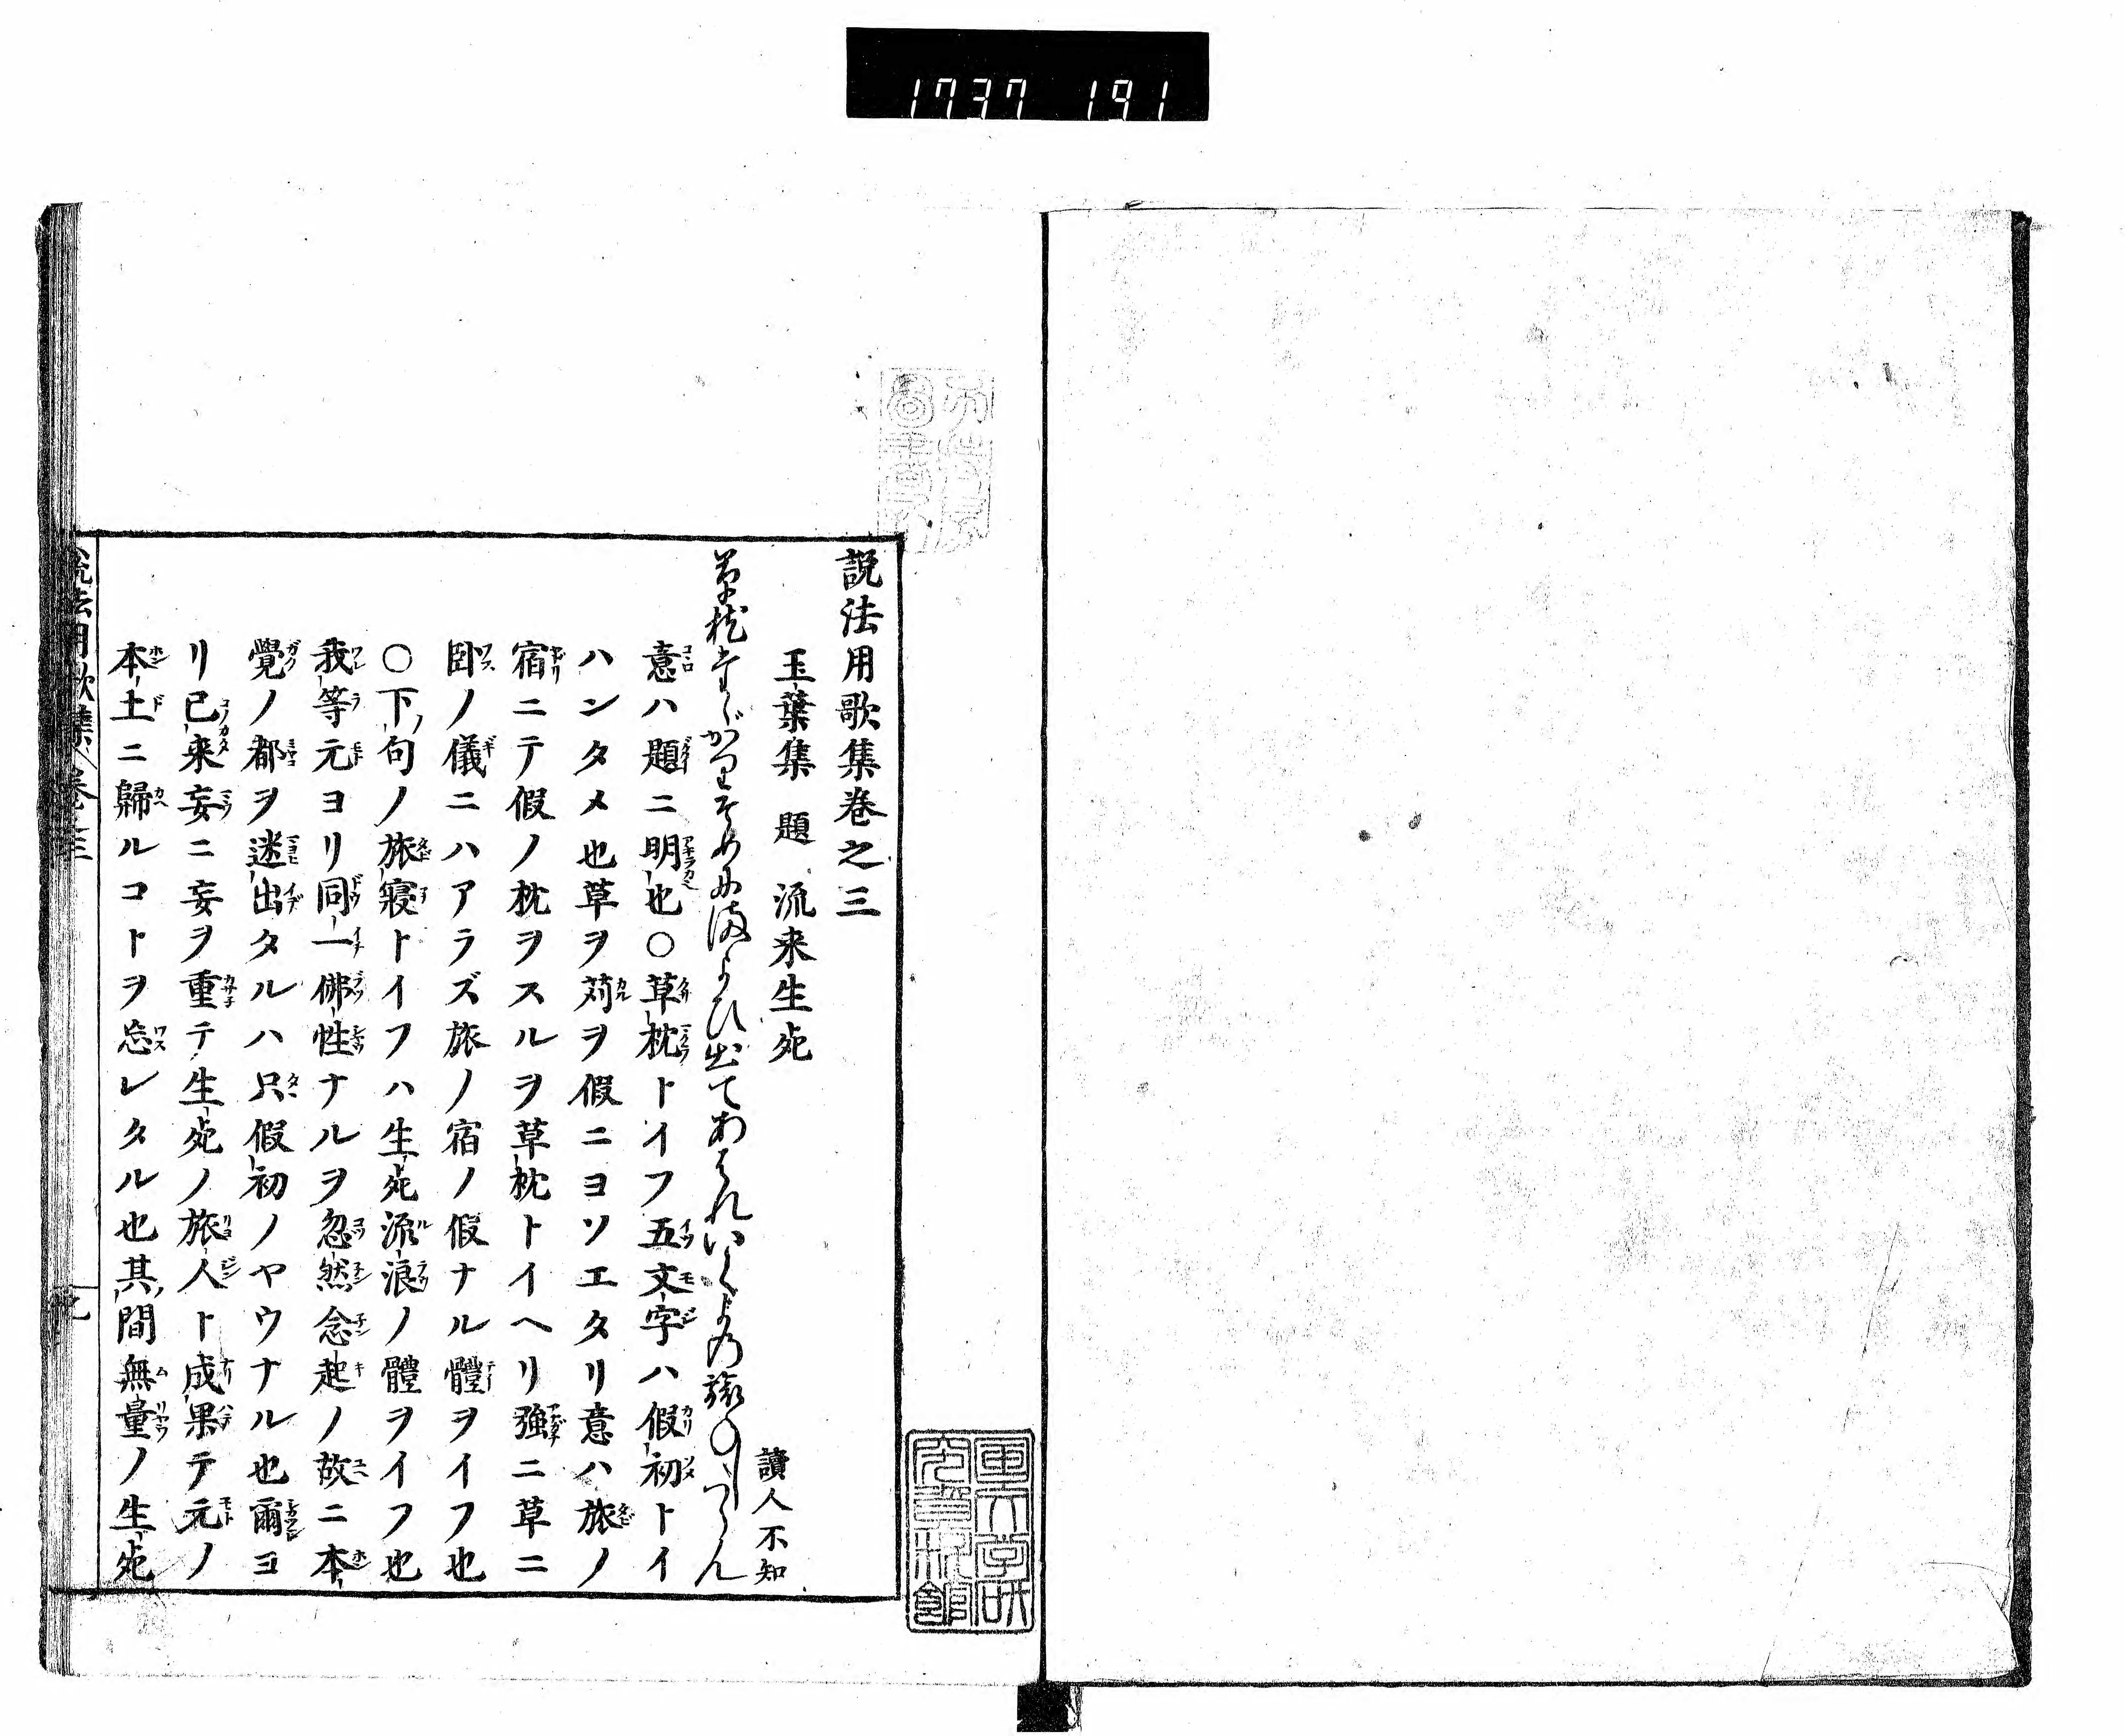 1737 191
説法用歌集巻之三
玉葉集 題 流来生死
讀人不知
草枕たゞかりそめにまよひ出てあはれいくよの旅ねしつらん
意ハ題ニ明也○草枕トイフ五文字ハ假初トイ
ハンタメ也草ヲ苅ヲ假ニヨソエタリ意ハ旅ノ
宿ニテ假ノ枕ヲスルヲ草枕トイヘリ強ニ草ニ
臥ノ儀ニハアラズ旅ノ宿ノ假ナル體ヲイフ也
○下ノ句ノ旅寝トイフハ生死流浪ノ體ヲイフ也
我等元ヨリ同一佛性ナルヲ忽然念起ノ故ニ本
覺ノ都ヲ迷出タルハ只假初ノヤウナル也爾ヨ
リ已来妄ニ妄ヲ重テ生死ノ旅人ト成果テ元ノ
本土ニ歸ルコトヲ忘レタル也其間無量ノ生死
説法用歌集 巻之三